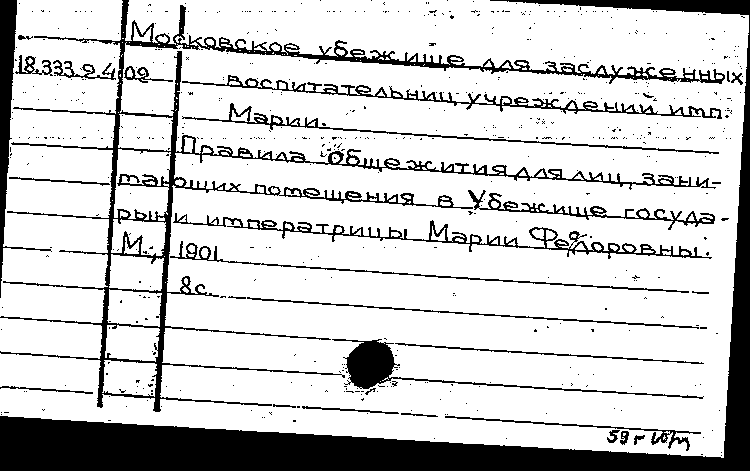 Московское убежище для заслуженных
18.333.2.4.02
воспитательниц учреждений имп.
Марии.
Правила общежития для лиц, зани-
тающих помещения в Убежище госуда-
рыни императрицы Марии Федоровны.
М., 1901
8с.
59 г